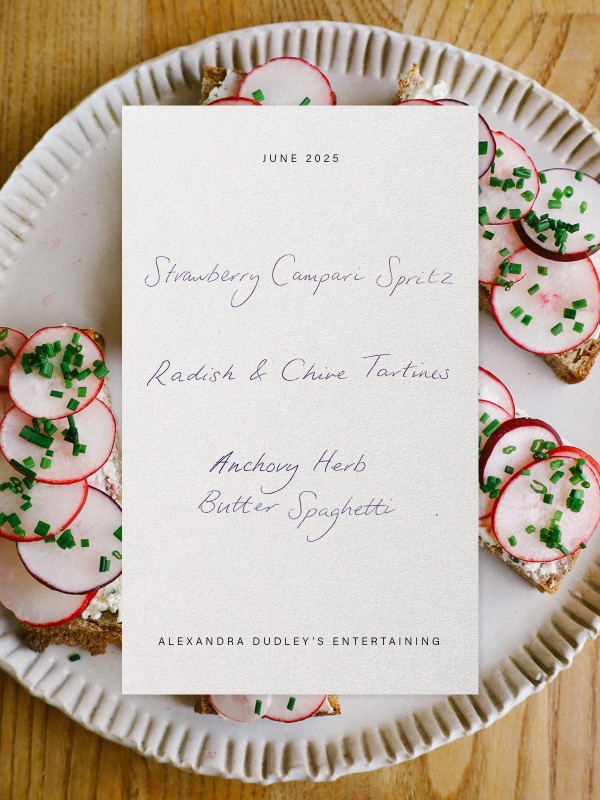 JUNE 2025
Strawberry Campari Spritz
Radish & Chive Tartines
Anchovy Herb
Butter Spaghetti
ALEXANDRA DUDLEY'S ENTERTAINING